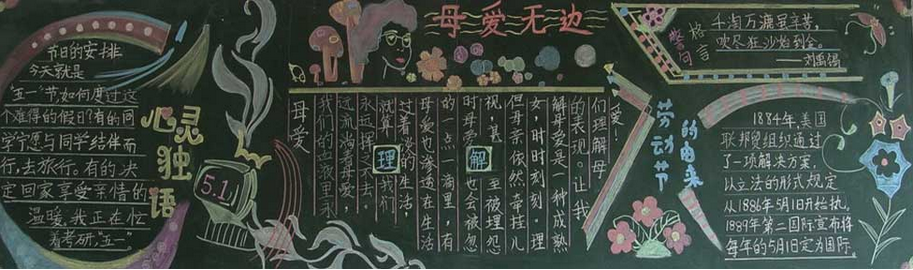 节日的安排
今天就是
五一节,如何度过这
个难得的假日?有的同
学宁愿与同学结伴而
行,去旅行。有的决
定回家享受亲情的
温暖,我正在忙
着考研,"五一"
心灵独语
5.1
母爱无边
爱!
们理解母
的表现。让我
解母爱是一种成熟
女,时时刻刻。理
但母亲依然牵挂儿
视,甚至也会被埋怨
时母爱也会被忽
的一点一滴里,有
母爱也渗透在生活
过着的生活,
就算我们
永远挥之不去。
远流淌着母爱,
我们的血液里永
母爱
理解
警句
格言
千淘万漉虽辛苦,
吹尽狂沙始到金。
——刘禹锡
劳动节的由来
1884年,美国
联邦贸组织通过
了一项解决方案,
以立法的形式规定
从1886年5月1日开始执,
1889年第二国际宣布将
每年的5月1日定为国际